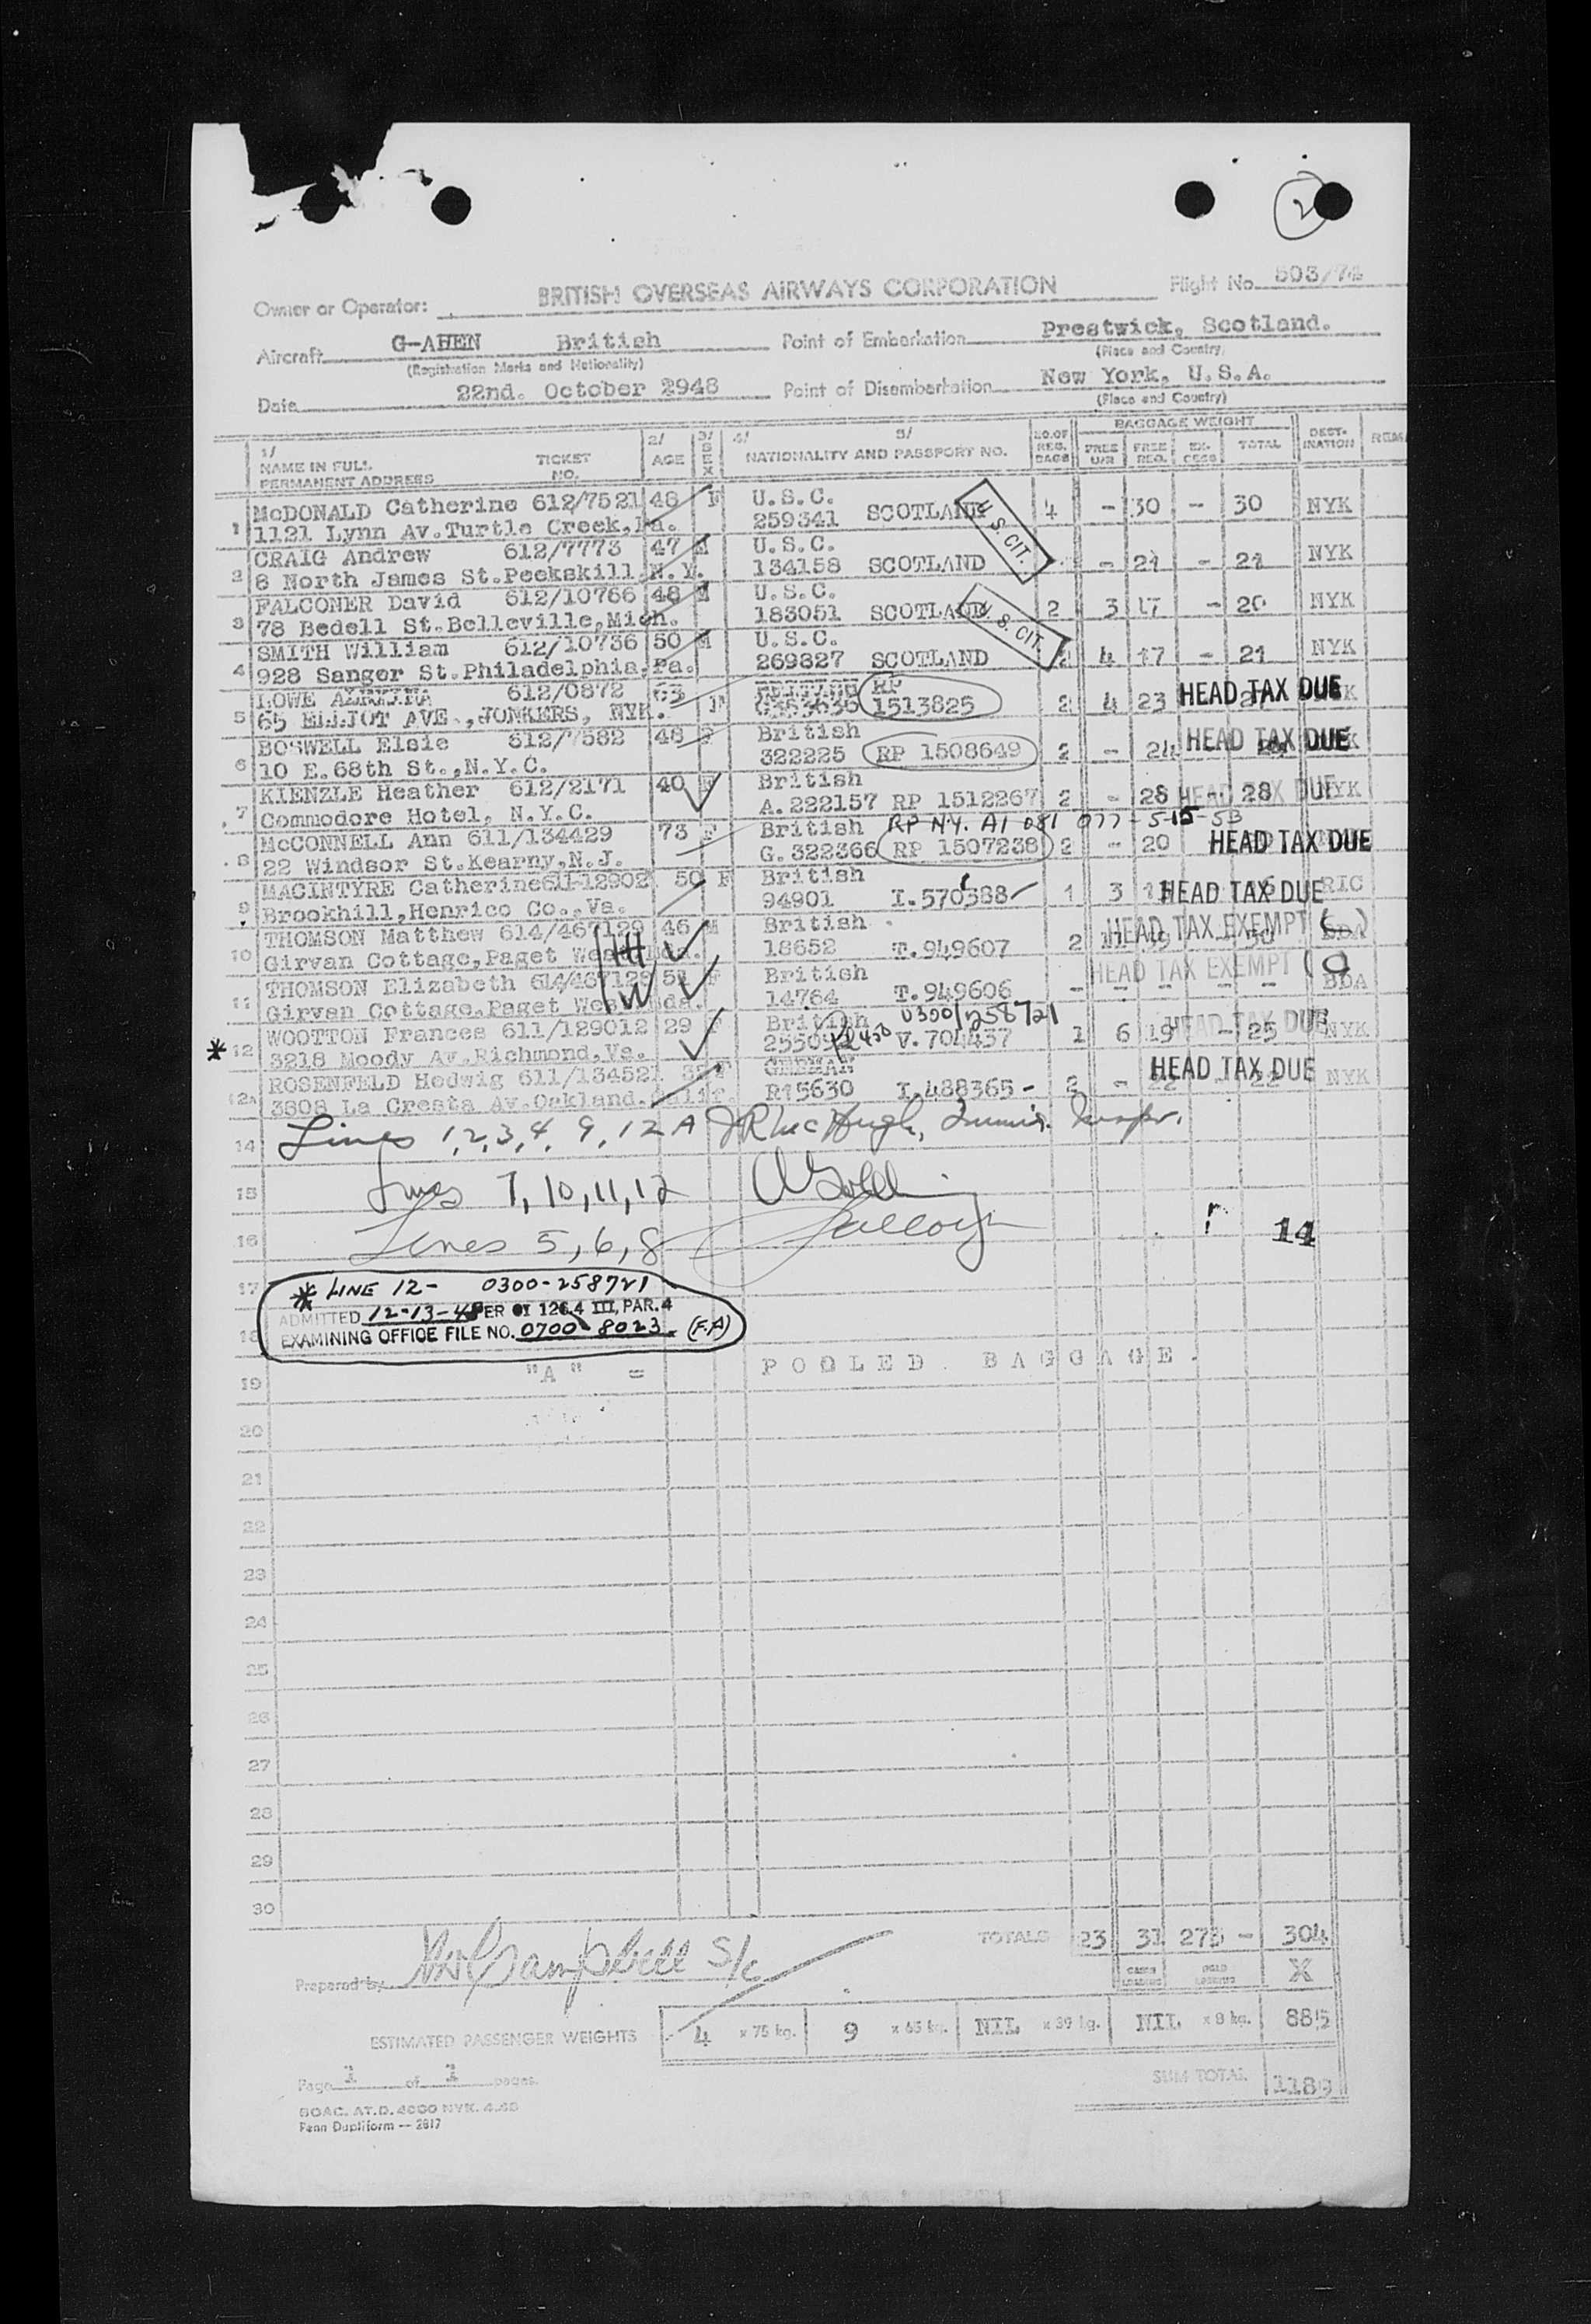 2
Owner or Operator: BRITISH OVERSEAS AIRWAYS CORPORATION Flight No. 503/74
Aircraft G-AHEN British Point of Embarkation Prestwick, Scotland.
(Registration Marks and Nationality) (Place and Country)
Date 22nd. October 2948 Point of Disembarkation New York, U.S.A.
(Place and Country)
1/ NAME IN FULL PERMANENT ADDRESS TICKET NO. 2/ AGE 3/ SEX 4/ 5/ NATIONALITY AND PASSPORT NO. NO. OF REG. BAGS BAGGAGE WEIGHT FREE U/R FREE REG. EX-CESS TOTAL DEST-INATION REM
1 McDONALD Catherine 612/7521 48 F U.S.C. 4 - 30 - 30 NYK
1121 Lynn Av.Turtle Creek,Pa. 259341 SCOTLAND U.S. CIT.
2 CRAIG Andrew 612/7773 47 M U.S.C. - 21 - 21 NYK
8 North James St.Peekskill N.Y. 134158 SCOTLAND
3 FALCONER David 612/10766 48 M U.S.C. 2 3 17 - 20 NYK
78 Bedell St.Belleville,Mich. 183051 SCOTLAND U.S. CIT.
4 SMITH William 612/10736 50 M U.S.C. 2 4 17 - 21 NYK
928 Sanger St.Philadelphia,Pa. 269827 SCOTLAND
5 LOWE 612/0872 63 F RP 2 4 23 HEAD TAX DUE
65 ELLIOT AVE.,JONKERS, NYK. 1513825
6 BOSWELL Elsie 612/7582 48 F British 2 - 24 HEAD TAX DUE
10 E.68th St.,N.Y.C. 322225 RP 1508649
7 KIENZLE Heather 612/2171 40 F British 2 - 28 - 28 HEAD TAX DUE NYK
Commodore Hotel, N.Y.C. A.222157 RP 1512267
RP NY. A1 081 077 - 5-15-53
8 McCONNELL Ann 611/134429 73 F British 2 - 20 HEAD TAX DUE
22 Windsor St.Kearny,N.J. G.322366 RP 1507238
9 MACINTYRE Catherine 611-12902 50 F British 1 3 HEAD TAX DUE RIC
Brookhill,Henrico Co.,Va. 94901 I.570388
10 THOMSON Matthew 614/467129 46 M British 2 HEAD TAX EXEMPT BDA
Girvan Cottage,Paget West Bda. 18652 T.949607
11 THOMSON Elizabeth 614/467129 F British - - - - - HEAD TAX EXEMPT BDA
Girvan Cottage,Paget West Bda. 14764 T.949606
0300/258721
* 12 WOOTTON Frances 611/129012 29 F British 1 6 19 - 25 HEAD TAX DUE NYK
3218 Moody Av.Richmond,Va. V.704437
12A ROSENFELD Hedwig 611/134521 F GERMAN 2 - 22 HEAD TAX DUE NYK
3808 La Cresta Av.Oakland.Calif. R15630 I.488365 -
14 Lines 1,2,3,4, 9, 12A JR McHugh, Immig. Inspr.
15 Lines 7,10,11,12
16 Lines 5,6,8
14
17 * LINE 12- 0300-258721
ADMITTED 12-13-48 PER OI 126.4 III, PAR. 4
18 EXAMINING OFFICE FILE NO. 0700-8023 (F.A)
19 "A" = POOLED BAGGAGE.
20
21
22
23
24
25
26
27
28
29
30
TOTALS 23 31 273 - 304
CABIN LOADING HOLD LOADING X
Prepared by Campbell S/c
ESTIMATED PASSENGER WEIGHTS 4 x 75 kg. 9 x 65 kg. NIL x 39 kg. NIL x 8 kg. 885
Page 1 of 1 pages. SUM TOTAL 1189
BOAC. AT.D. 4000 NYK. 4.48
Penn Dupliform — 2817